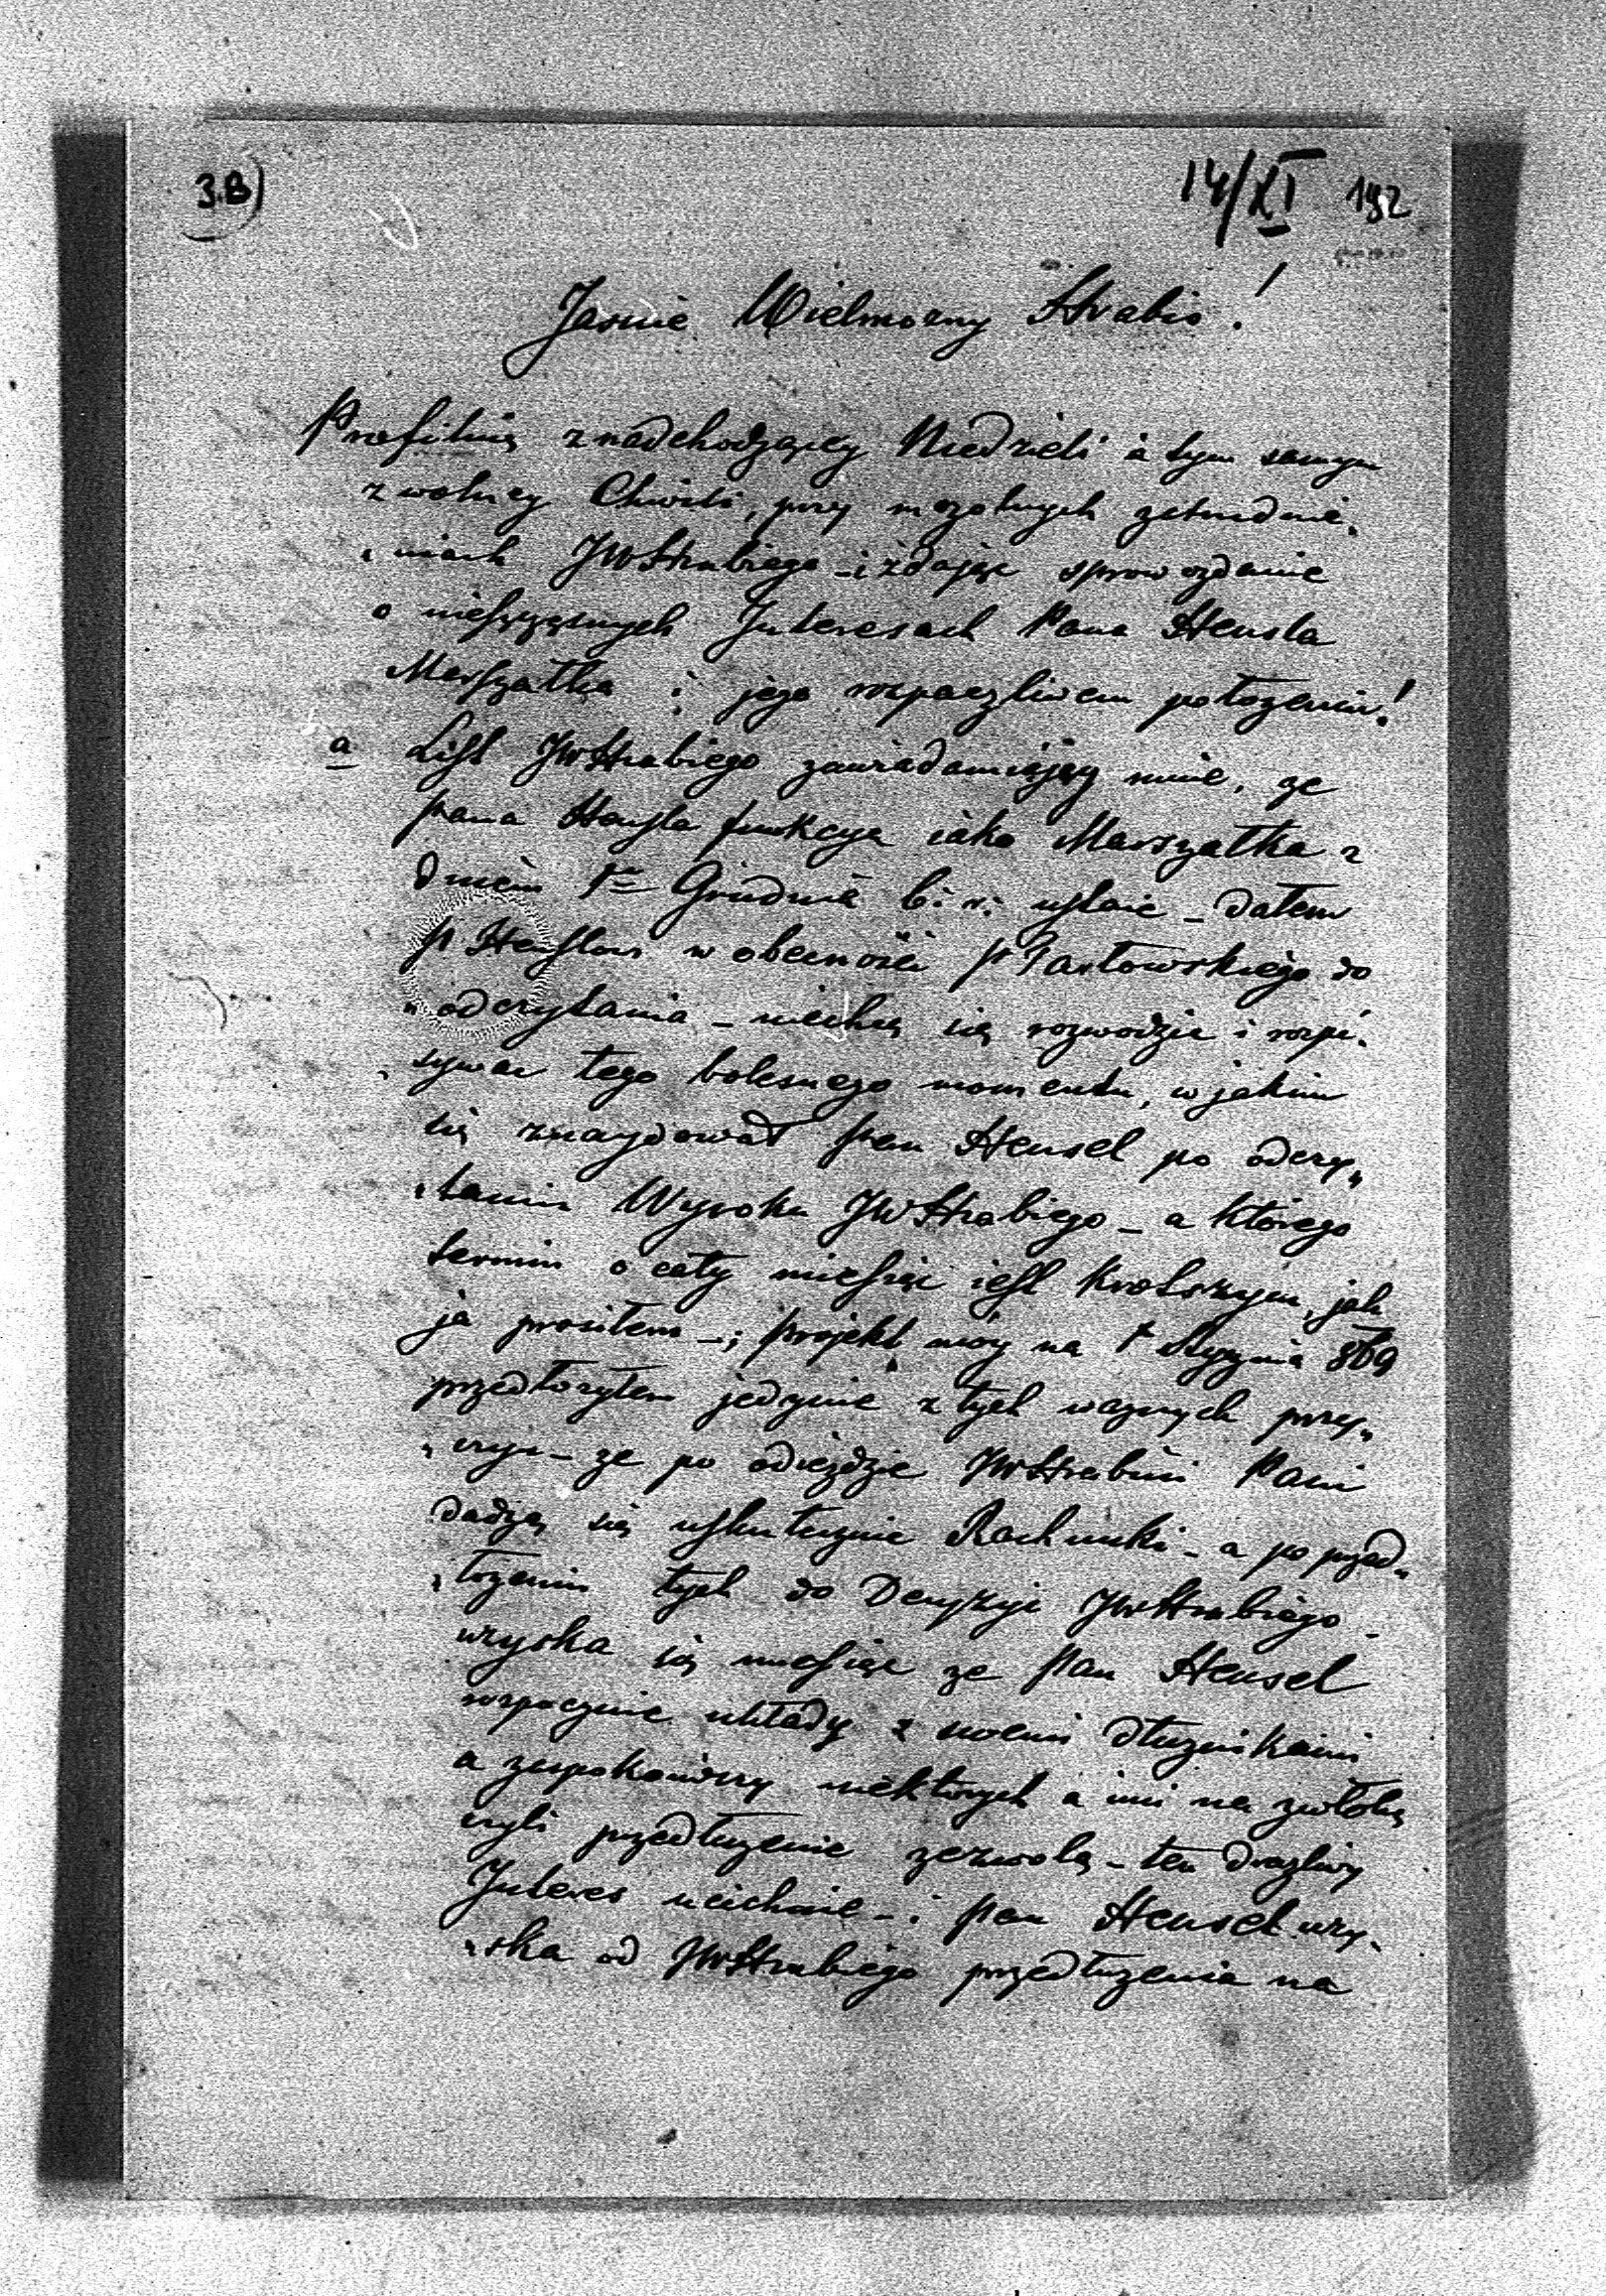 3.B)
14/XI 192
Jasnie Wielmożny Hrabio!
Profituię z nadchodzącey Niedzieli a tym samym
z wolney Chwili, przy mozolnych zatrudnie„
„niach JWHrabiego – i zdając sprawozdanie
o nieszczęsnych Interesach Pana Hensla
Marszałka i jego rozpaczliwem położeniu!
a List JWHrabiego zawiadamiający mnie, że
pana Hensla funkcya iako Marszałka z
dniem 1go Grudnia b: r: ustaie – dałem
p Henslowi w obecności p Pastowskiego do
„odczytania – niechcę się rozwodzić i rozpi„
„sywać tego bolesnego momentu, w jakim
się znaydował pan Hensel po odczy„
„taniu Wyroku JWHrabiego – a którego
termin o cały miesiąc iest krotszym, jak
ja prosiłem –; projekt móy na 1 Stycznia 869
przedłożyłem jedynie z tych ważnych przy„
„czyn – że po odieździe JWHrabini Pani
dadzą się uskutecznić Rachunki – a po przed„
„łożeniu tych do Decyzyi JWHrabiego –
uzyska się miesiąc że pan Hensel
rozpocznie układy z swemi dłużnikami
a zaspokoiwszy niektórych a inni na zwłokę
czyli przedłużenie zezwolą – ten drażliwy
Interes ucichnie – i pan Hensel uzy„
„ska od JWHrabiego przedłużenia na